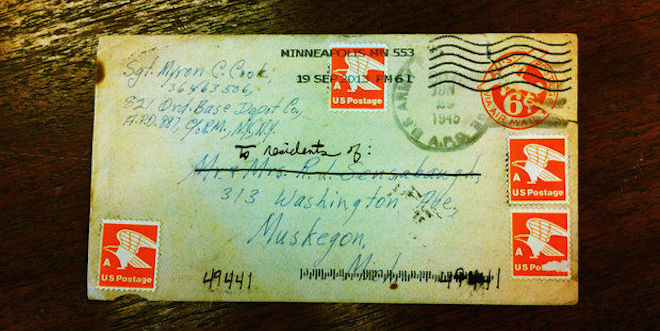 Sgt. Myron C. Cook,
36463506,
821 Ord. Base Depot Co,
A.P.O. 887, c/o P.M., N.Y., N.Y.
MINNEAPOLIS MN 553
19 SEP 2013 PM 6 1
A
US Postage
JUN
29
1945
A.P.O.
VIA AIR MAIL
6¢
To residents of:
Mr. & Mrs. R. J. Sensabaugh,
313 Washington Ave,
Muskegon,
Mich
49441
49441
A
US Postage
A
US Postage
A
US Po